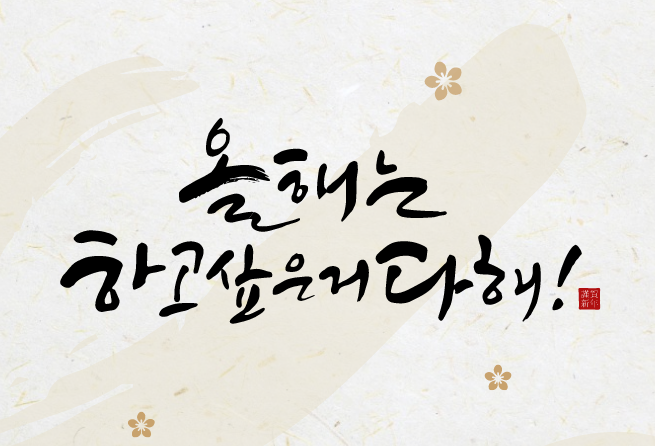 올해는
하고싶은거 다해!
謹賀
新年